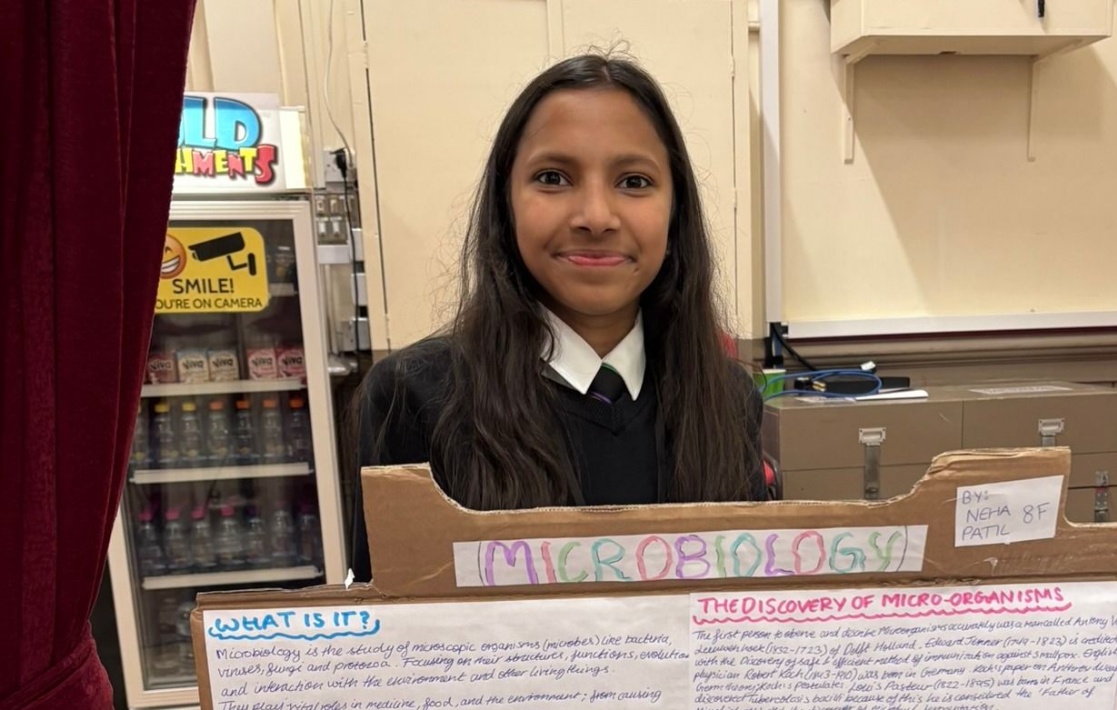 LD
HMENTS
SMILE!
OU'RE ON CAMERA
ViVO ViVO ViVO
BY:
NEHA 8F
PATIL
MICROBIOLOGY
WHAT IS IT?
Microbiology is the study of microscopic organisms (microbes) like bacteria,
viruses, fungi and protozoa. Focusing on their structures, functions, evolution
and interaction with the environment and other living things.
They play vital roles in medicine, food, and the environment; from causing
THE DISCOVERY OF MICRO-ORGANISMS
The first person to observe and describe Microorganisms accurately was a man called Antony
Leeuwenhoek (1632-1723) of Delft Holland. Edward Jenner (1749-1823) is
with the Discovery of safe & efficient method of immunization against smallpox. English
physician Robert Koch (1843-1910) was born in Germany. Koch's paper on Anthrax
Germ theory, Koch's Postulates. Louis Pasteur (1822-1895) was born in France and
discovered Tuberculosis bacilli because of this he is considered the 'Father of